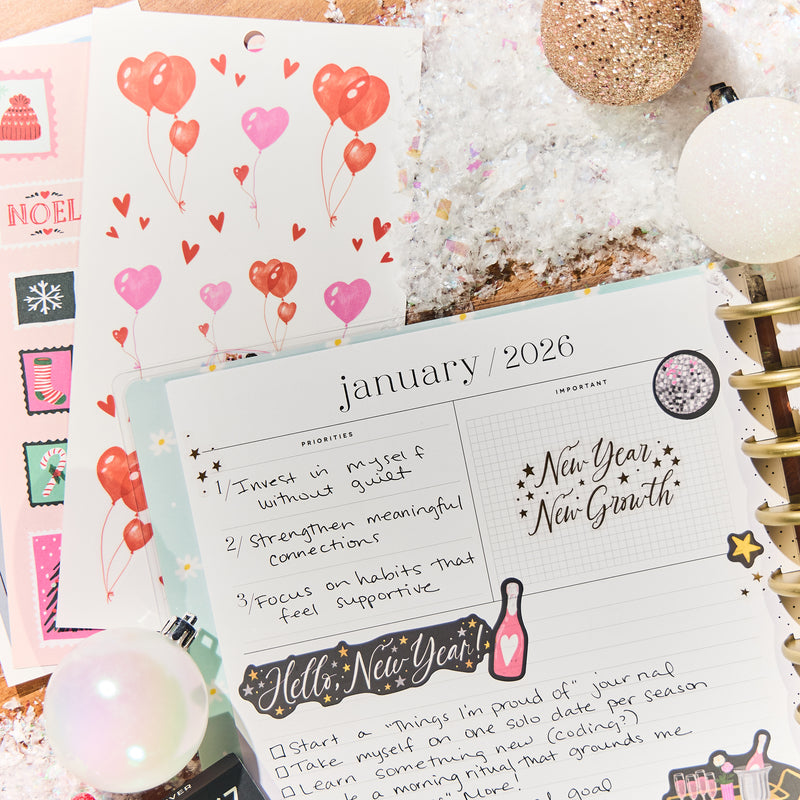 NOEL
january / 2026
PRIORITIES
IMPORTANT
1/ Invest in myself
without guilt
2/ Strengthen meaningful
connections
3/ Focus on habits that
feel supportive
New Year
New Growth
Hello, New Year!
Start a "Things I'm proud of" journal
Take myself on one solo date per season
Learn something new (coding?)
a morning ritual that grounds me
" More!
goal